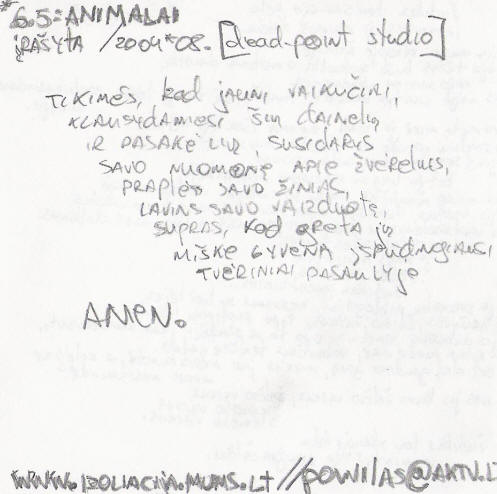 *6.5: ANIMALAI
įRAŠYTA /2004*08. [dead-point studio]
TIKIMĖS, kad jauni VAIKUČIAI,
KLAUSYDAMIESI ŠIŲ DAINELIŲ
IR PASAKĖLIŲ, SUSIDARYS
SAVO NUOMONĘ APIE ŽVĖRELIUS,
PRAPLĖS SAVO ŽINIAS,
LAVINS SAVO VAIZDUOTĘ,
SUPRAS, kad greta jų
MIŠKE GYVENA įSPŪDINGIAUSI
TVĖRINIAI PASAULyje
AMEN.
WWW.IZOLIACIJA.MUMS.LT//powilas@AKTV.LT